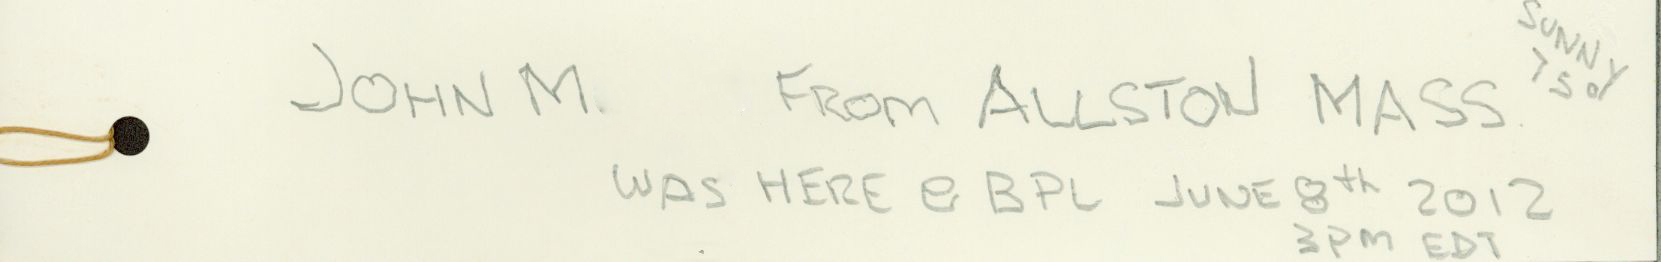 JOHN M. FROM ALLSTON MASS.
SUNNY
75°
WAS HERE @ BPL JUNE 8th 2012
3PM EDT